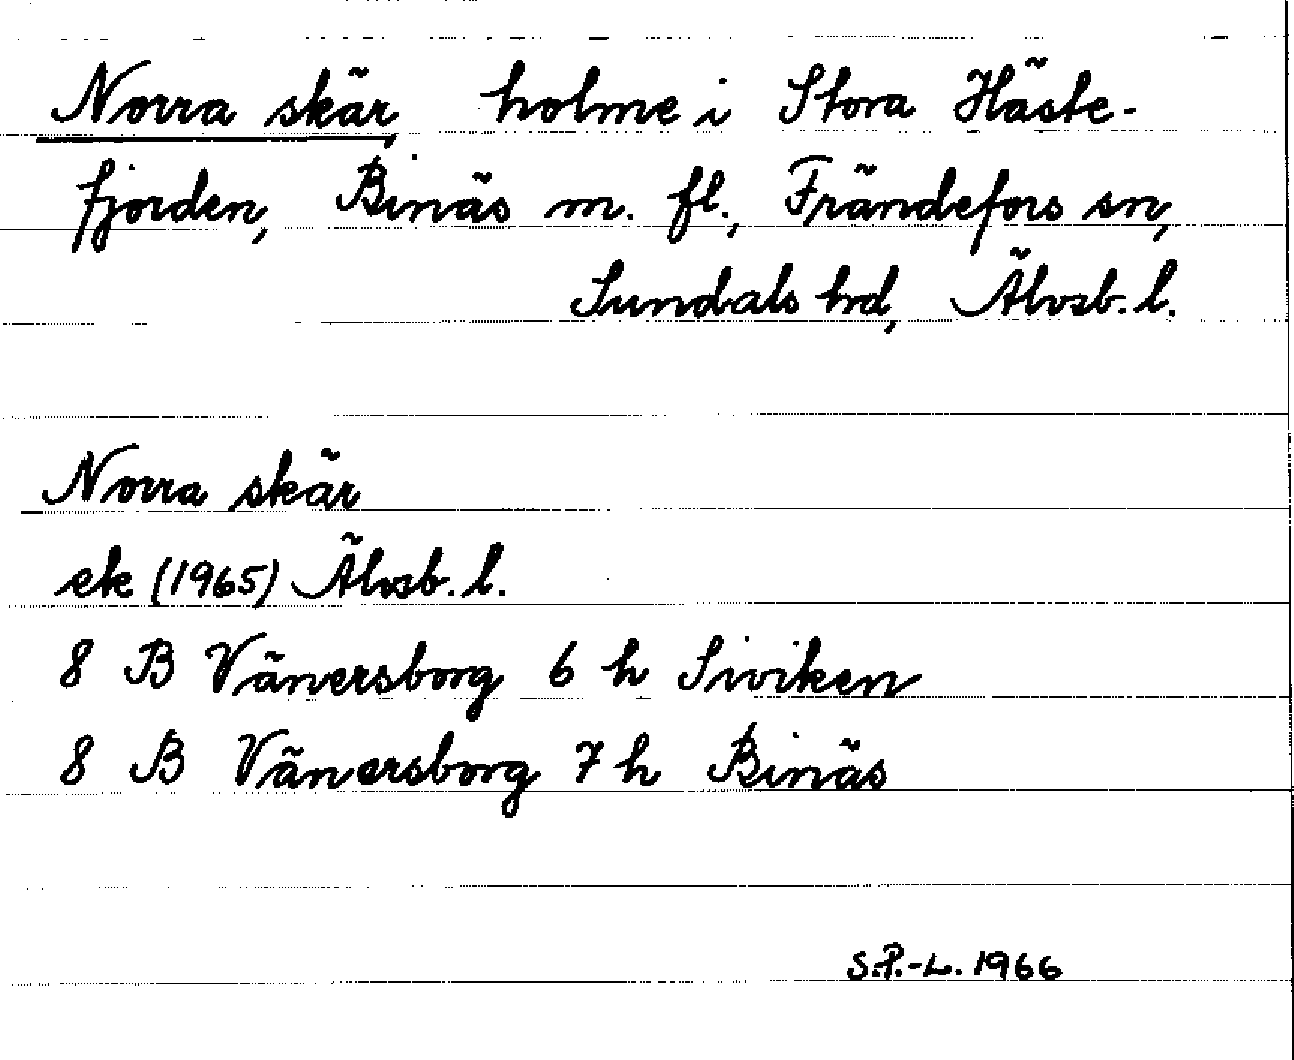 Norra skär, holme i Stora Häste-
fjorden, Binäs m. fl., Frändefors sn,
Sundals hd, Älvsb. l.
Norra skär
ek (1965) Älvsb. l.
8 B Vänersborg 6 h Siviken
8 B Vänersborg 7 h Binäs
S.P.-L. 1966